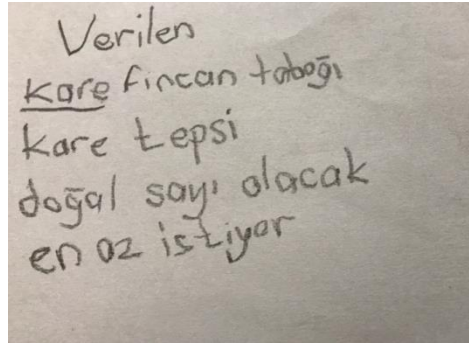 Verilen
kare fincan tabağı
kare tepsi
doğal sayı olacak
en az istiyor